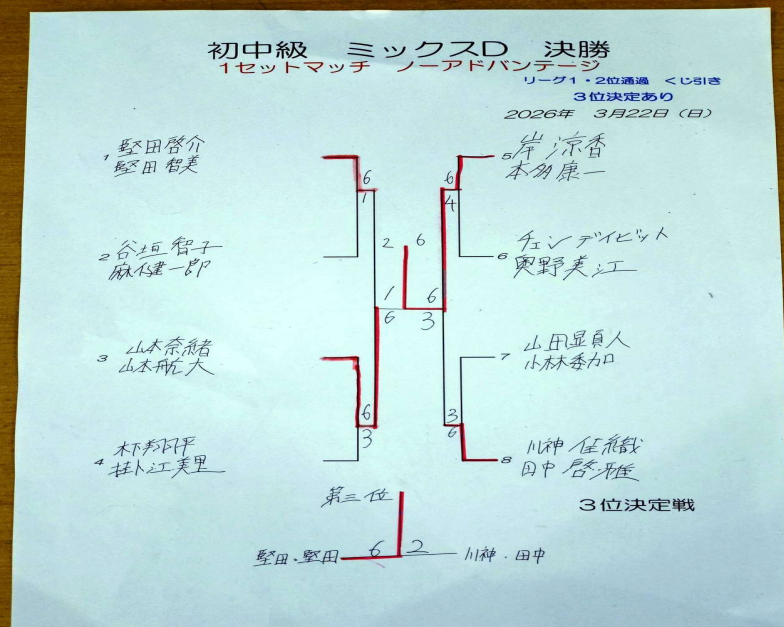 初中級　ミックスD　決勝
1セットマッチ　ノーアドバンテージ
リーグ1・2位通過　くじ引き
3位決定あり
2026年　3月22日（日）
1 堅田啓介
堅田智美
2 谷垣智子
麻 健一郎
3 山本奈緒
山本航大
4 木下 平
江美里
6
1
6
3
2 6
1 6
6 3
5 岸 涼香
本多康一
6 チェン デイビット
奥野美江
7 山田 人
小林 加
8 川神 佳織
田中 啓雅
6
4
3
6
第三位
3位決定戦
堅田・堅田 6 2 川神・田中